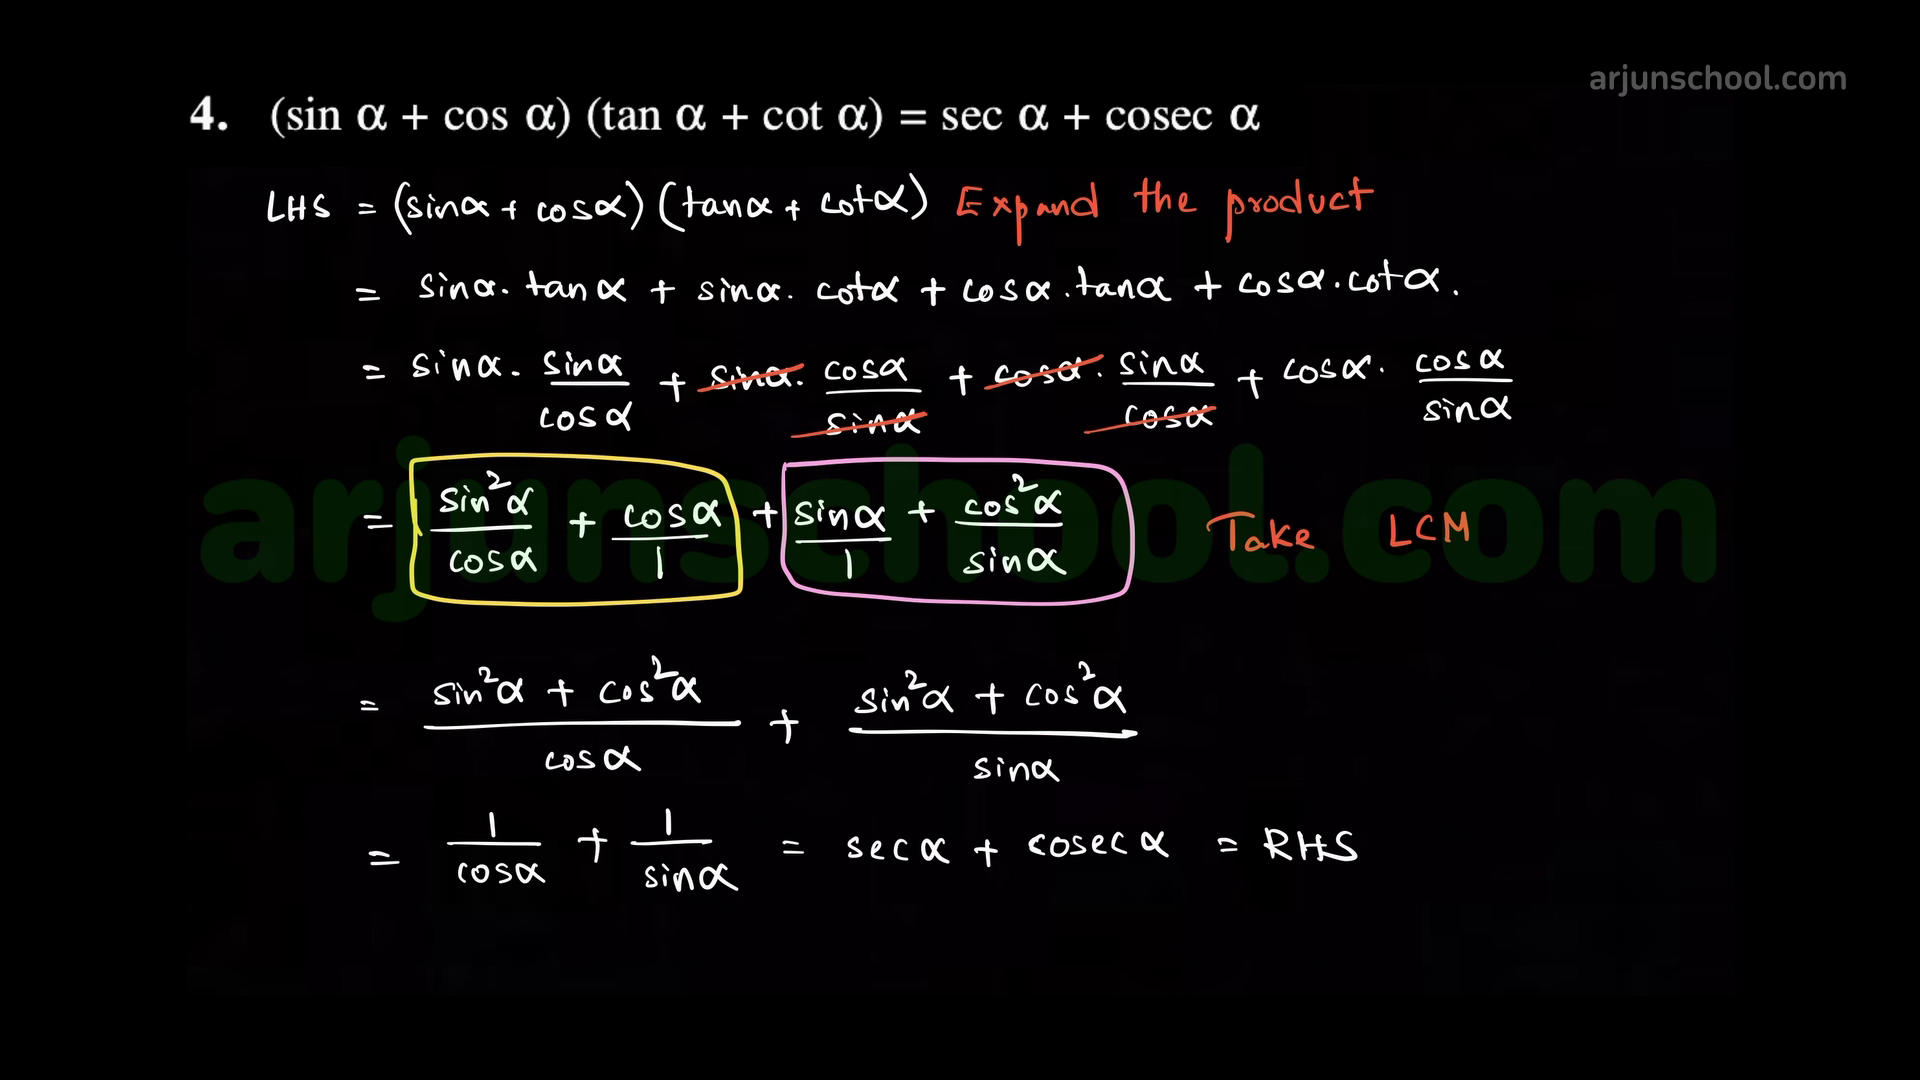 arjunschool.com
4. (sin α + cos α) (tan α + cot α) = sec α + cosec α
LHS = (sinα + cosα) (tanα + cotα) Expand the product
= sinα. tanα + sinα. cotα + cosα.tanα + cosα.cotα.
= sinα. sinα/cosα + sinα. cosα/sinα + cosα. sinα/cosα + cosα. cosα/sinα
= sin²α/cosα + cosα/1 + sinα/1 + cos²α/sinα Take LCM
arjunschool.com
= (sin²α + cos²α)/cosα + (sin²α + cos²α)/sinα
= 1/cosα + 1/sinα = secα + cosecα = RHS